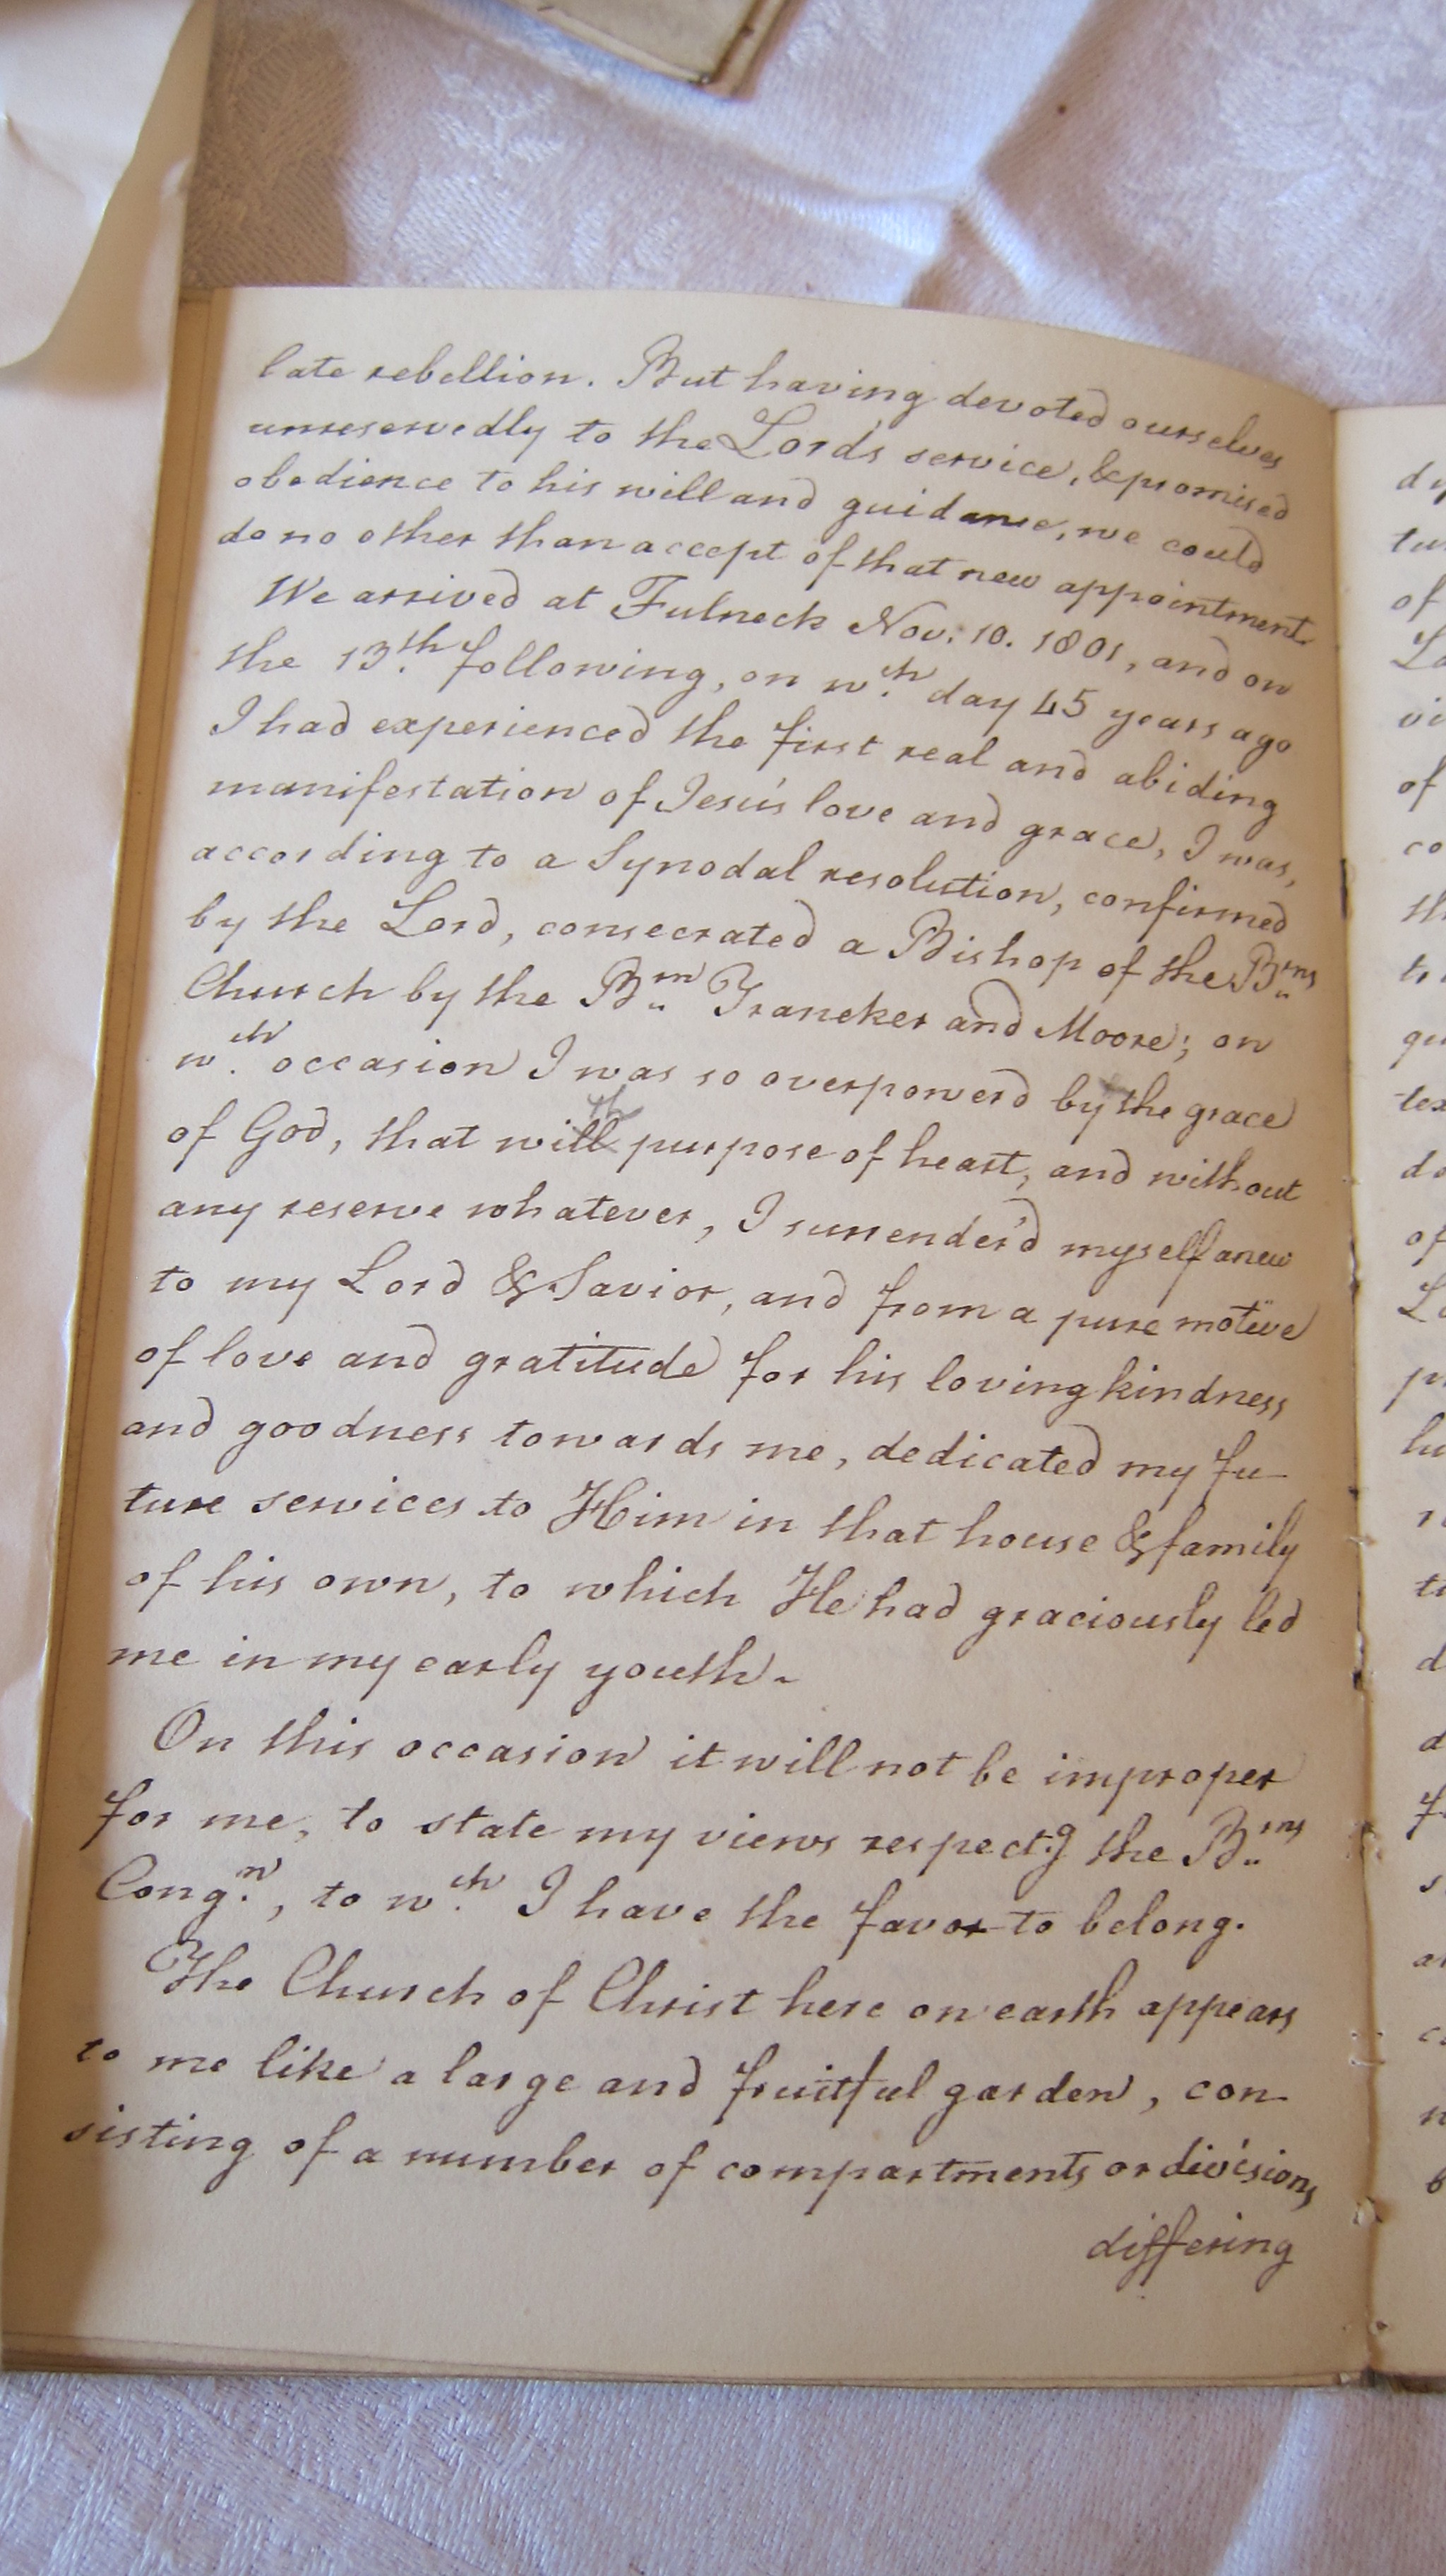 late rebellion. But having devoted ourselves
unreservedly to the Lord's service, & promised
obedience to his will and guidance, we could
do no other than accept of that new appointment.
We arrived at Fulneck Nov: 10. 1801, and on
the 13th following, on wch day 45 years ago
I had experienced the first real and abiding
manifestation of Jesu's love and grace, I was,
according to a Synodal resolution, confirmed
by the Lord, consecrated a Bishop of the Brns
Church by the Brn Traneker and Moore; on
wch occasion I was so overpowerd by the grace
of God, that with purpose of heart, and without
any reserve whatever, I surrender'd myself anew
to my Lord & Savior, and from a pure motive
of love and gratitude for his loving kindness
and goodness towards me, dedicated my fu-
ture services to Him in that house & family
of his own, to which He had graciously led
me in my early youth.
On this occasion it will not be improper
for me, to state my views respect:g the Brns
Congn, to wch I have the favor to belong.
The Church of Christ here on earth appears
to me like a large and fruitful garden, con-
sisting of a number of compartments or divisions
differing